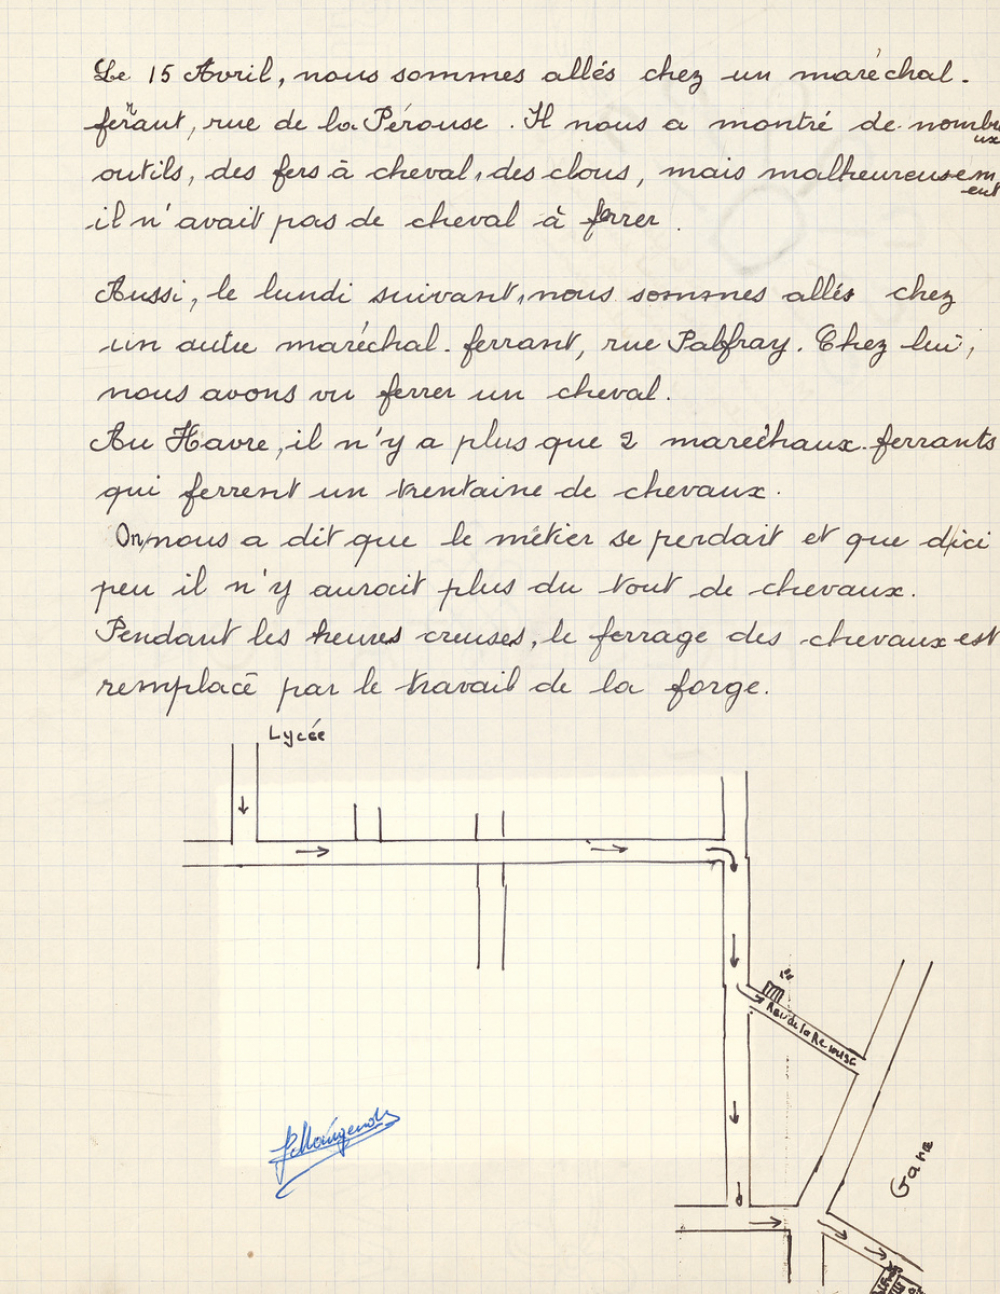 Le 15 Avril, nous sommes allés chez un maréchal-
ferrant, rue de la Pérouse. Il nous a montré de nombreux
outils, des fers à cheval, des clous, mais malheureusement
il n'avait pas de cheval à ferrer.
Aussi, le lundi suivant, nous sommes allés chez
un autre maréchal-ferrant, rue Palfray. Chez lui,
nous avons vu ferrer un cheval.
Au Havre, il n'y a plus que 2 maréchaux-ferrants
qui ferrent un trentaine de chevaux.
On nous a dit que le métier se perdait et que d'ici
peu il n'y aurait plus du tout de chevaux.
Pendant les heures creuses, le ferrage des chevaux est
remplacé par le travail de la forge.
Lycée
1er
Rue de la Pérouse
Gare